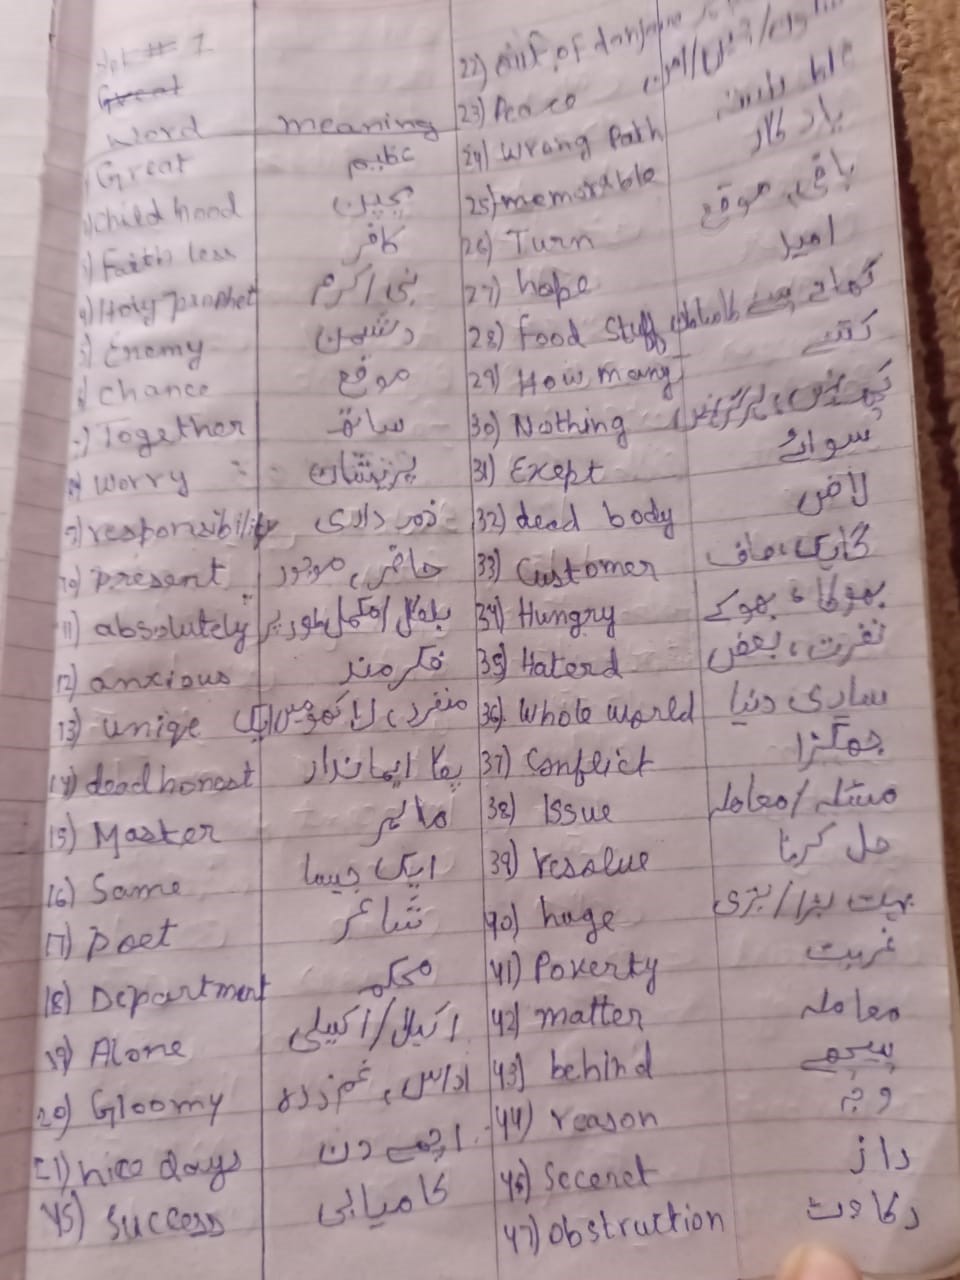 Word meaning
Great عظیم
Child hood بچپن
Faith less کافر
4) Holy prophet نبی اکرم
5) Enemy دشمن
6) chance موقع
7) Together ساتھ
8) worry پریشان
9) responsibility ذمہ داری
10) Present حاضر، موجود
11) absolutely بلکل/مکمل طور پر
12) anxious فکر مند
13) uniqe منفرد،
14) deadhonest پکا ایماندار
15) Master ماسٹر
16) Same ایک جیسا
17) poet شاعر
18) Department محکمہ
19) Alone اکیلا/اکیلی
20) Gloomy اداس، غم زدہ
21) nice days اچھے دن
45) Success کامیابی
22) out of danger
23) Peace
24) wrong Path غلط راستہ
25) memorable یادگار
26) Turn باری، موقع
27) hope امید
28) Food Stuff
29) How many کتنے
30) Nothing کچھ نہیں،
31) Except سوائے
32) dead body لاش
33) Customer گاہک،
34) Hungry بھوکا، بھوکے
35) Haterd نفرت، بعض
36) Whole world ساری دنیا
37) Conflict جھگڑا
38) Issue مسئلہ/معاملہ
39) resolue حل کرنا
40) huge بہت بڑا/بڑی
41) Poverty غربت
42) matter معاملہ
43) behind پیچھے
44) reason وجہ
46) Seceret راز
47) obstruction رکاوٹ